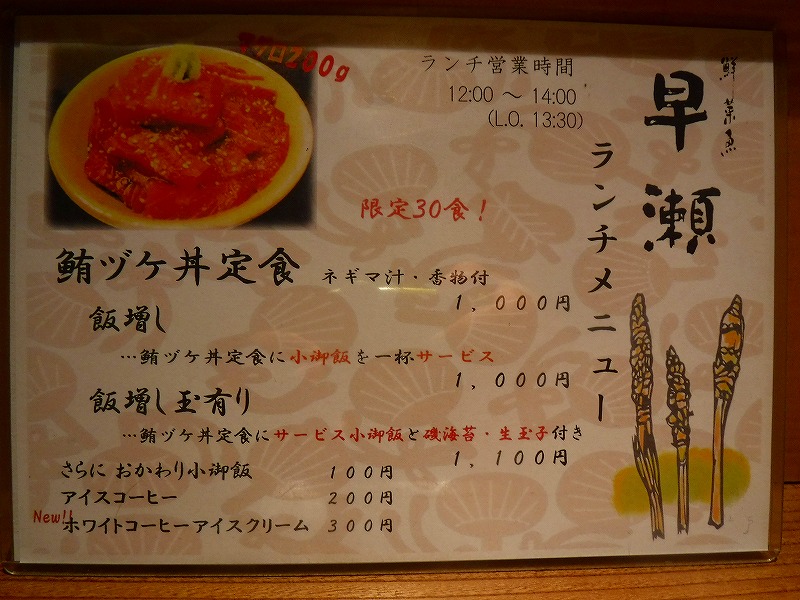 鮮菜魚
早瀬
ランチメニュー
ランチ営業時間
12:00 ～ 14:00
(L.O. 13:30)
マグロ200g
限定30食！
鮪ヅケ丼定食 ネギマ汁・香物付
1,000円
飯増し
…鮪ヅケ丼定食に小御飯を一杯サービス
1,000円
飯増し玉有り
…鮪ヅケ丼定食にサービス小御飯と磯海苔・生玉子付き
1,100円
さらに おかわり小御飯 100円
アイスコーヒー 200円
New!! ホワイトコーヒーアイスクリーム 300円